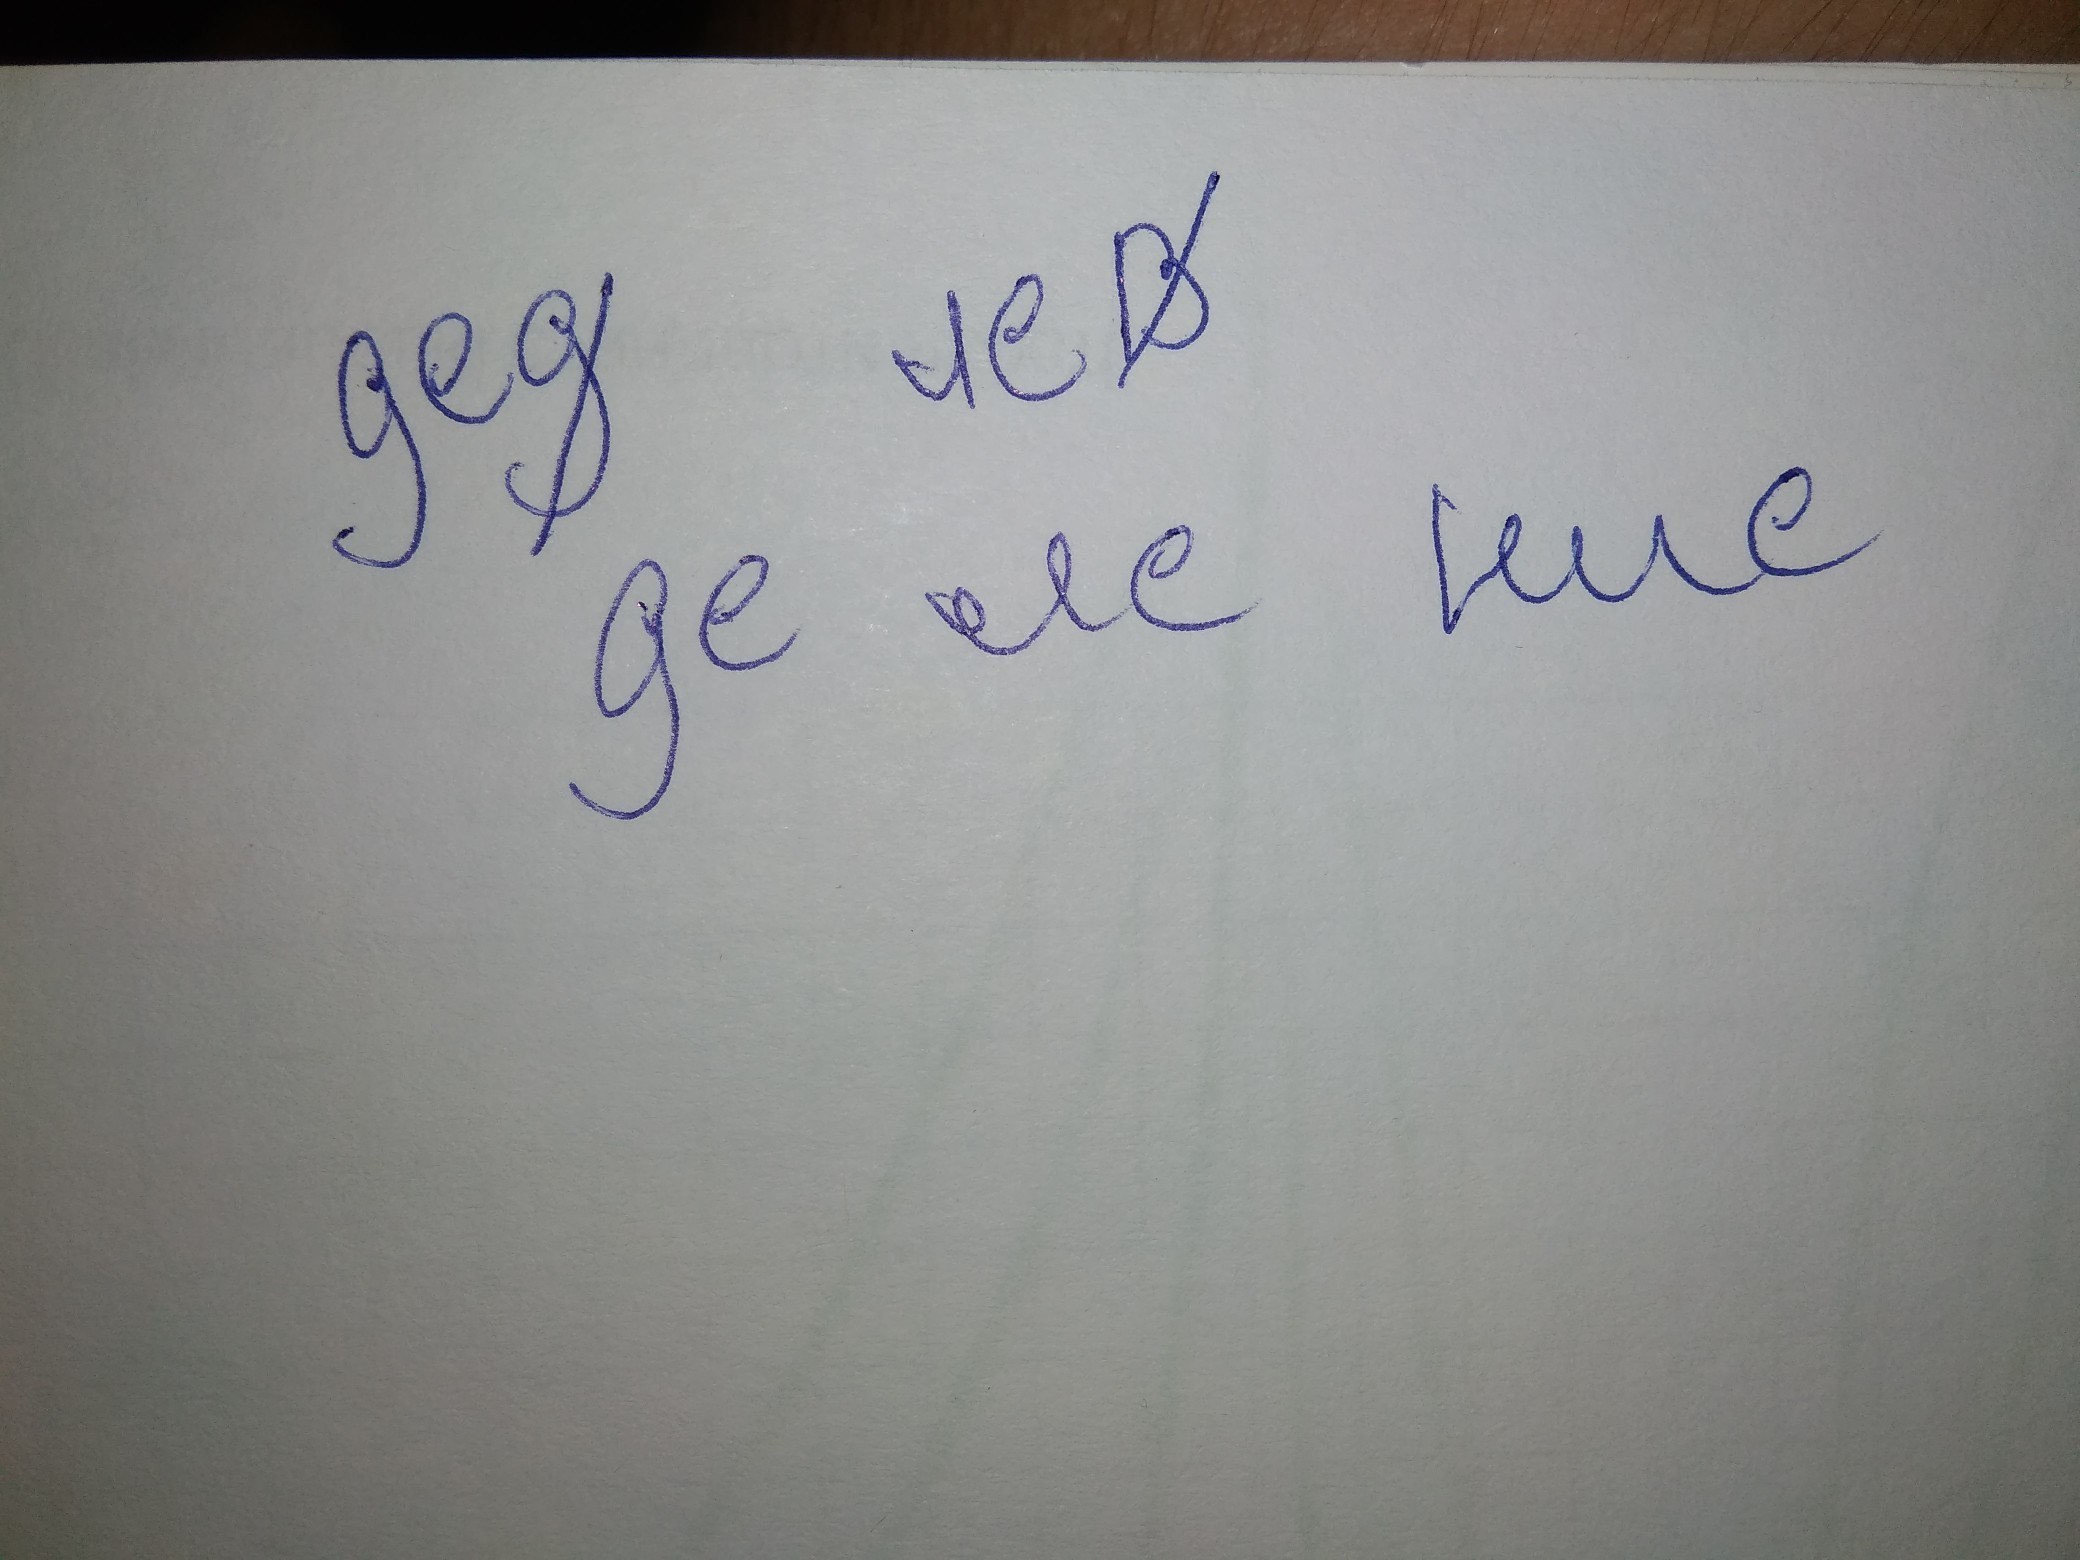 дед лев
де ле ние